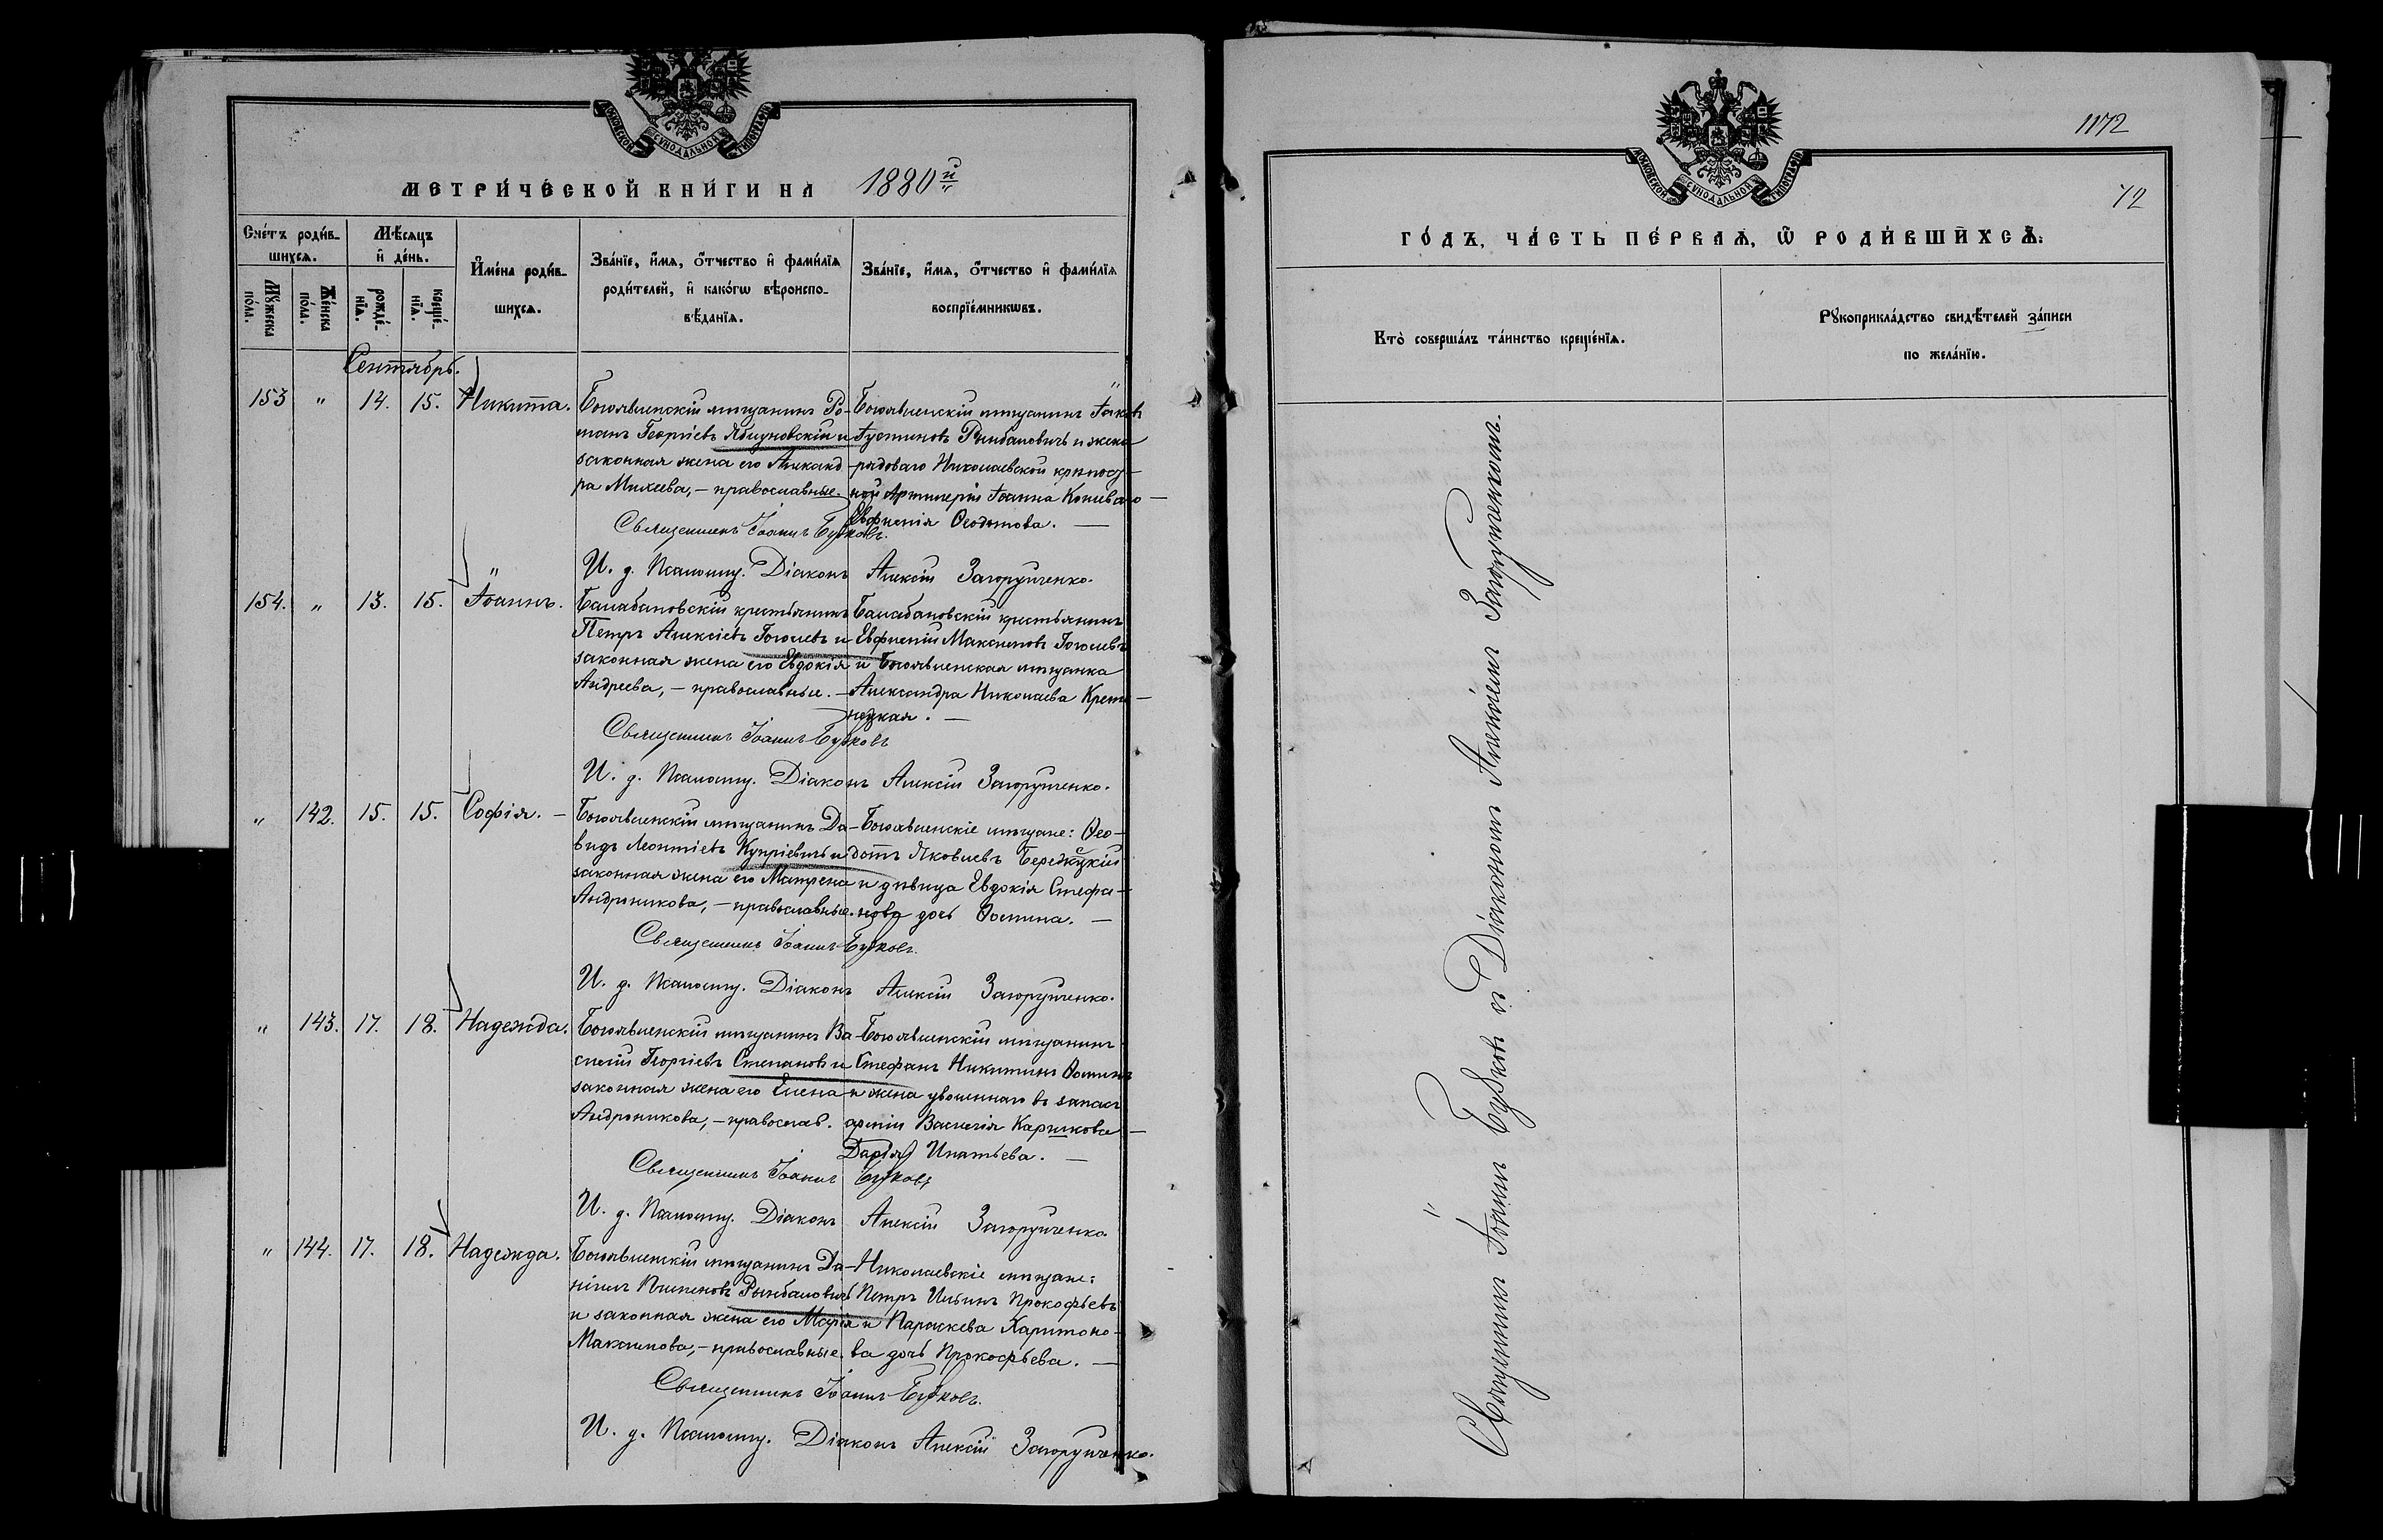 МОСКОВСКОЙ СѴНОДАЛЬНОЙ ТИПОГРАФІИ
МЕТРИ́ЧЕСКОЙ КНИ́ГИ НА 1880й
Сче́тъ роди́в-
шихсѧ.
Мѣ́сяцъ
и҆ де́нь.
И҆мена̀ роди́в-
шихсѧ.
Зва́нїе, и҆́мѧ, ѻ҆́тчество и҆ фами́лїѧ
роди́телей, и҆ како́гѡ вѣроиспо-
вѣ́данїѧ.
Зва́нїе, и҆́мѧ, ѻ҆́тчество и҆ фами́лїѧ
воспрїе́мникѡвъ.
Мꙋ́жеска
по́ла.
Же́нска
по́ла.
рожде́-
нїѧ.
креще́-
нїѧ.
Сентябрь.
153 " 14. 15. Никита.
Богоявленскій мѣщанинъ Ро-
манъ Георгіевъ Яблуновскій и
законная жена его Александ-
ра Михеева, – православные.
Богоявленскій мѣщанинъ Іаковъ
Іустиновъ Рымбаловичъ и жена
рядоваго Николаевской крѣпост-
ной Артиллеріи Іоанна Коневаго
Евфимія Ѳеодотова. —
Священникъ Іоаннъ Бутковъ.
И. д. Псаломщ. Діаконъ Алексій Загоруйченко.
154. " 13. 15. Іоаннъ.
Балабановскій крестьянинъ
Петръ Алексіевъ Гоголевъ и
законная жена его Евдокія
Андреева, – православные. –
Балабановскій крестьянинъ
Евфимій Максимовъ Гоголевъ
и Богоявленская мѣщанка
Александра Николаева Креме-
нецкая. —
Священникъ Іоаннъ Бутковъ
И. д. Псаломщ. Діаконъ Алексій Загоруйченко.
" 142. 15. 15. Софія. –
Богоявленскій мѣщанинъ Да-
видъ Леонтіевъ Купріевичъ и
законная жена его Матрена
Андроникова, – православные.
Богоявленскіе мѣщане: Ѳео-
дотъ Яковлевъ
и дѣвица Евдокія Стефа-
нова дочь Ѳомина. —
Священникъ Іоаннъ Бутковъ.
И. д. Псаломщ. Діаконъ Алексій Загоруйченко.
" 143. 17. 18. Надежда.
Богоявленскій мѣщанинъ Ва-
силій Георгіевъ Степановъ и
законная жена его Елена
Андроникова, – православ.
Богоявленскій мѣщанинъ
Стефанъ Никитинъ Ѳоминъ
и жена уволеннаго въ запасъ
арміи Василія Карпикова
Дарія Ипатьева. —
Священникъ Іоаннъ Бутковъ
И. д. Псаломщ. Діаконъ Алексій Загоруйченко
" 144. 17. 18. Надежда.
Богоявленскій мѣщанинъ Да-
ніилъ Филиповъ Рымбаловичъ
и законная жена его Марія
Максимова, – православные.
Николаевскіе мѣщане:
Петръ Ильинъ Прокофьевъ
и Параскева Харитоно-
ва дочь Прокофьева. —
Священникъ Іоаннъ Бутковъ.
И. д. Псаломщ. Діаконъ Алексій Загоруйченко.
1172
72
МОСКОВСКОЙ СѴНОДАЛЬНОЙ ТИПОГРАФІИ
ГО́ДЪ, ЧА́СТЬ ПЕ́РВАѦ, Ѽ РОДИ́ВШИХСѦ:
Кто̀ соверша́лъ та́инство креще́нїѧ.
Рꙋкоприкла́дство свидѣ́телей за́писи
по жела́нїю.
Священникъ Іоаннъ Бутковъ съ Діакономъ Алексіемъ Загоруйченкомъ.